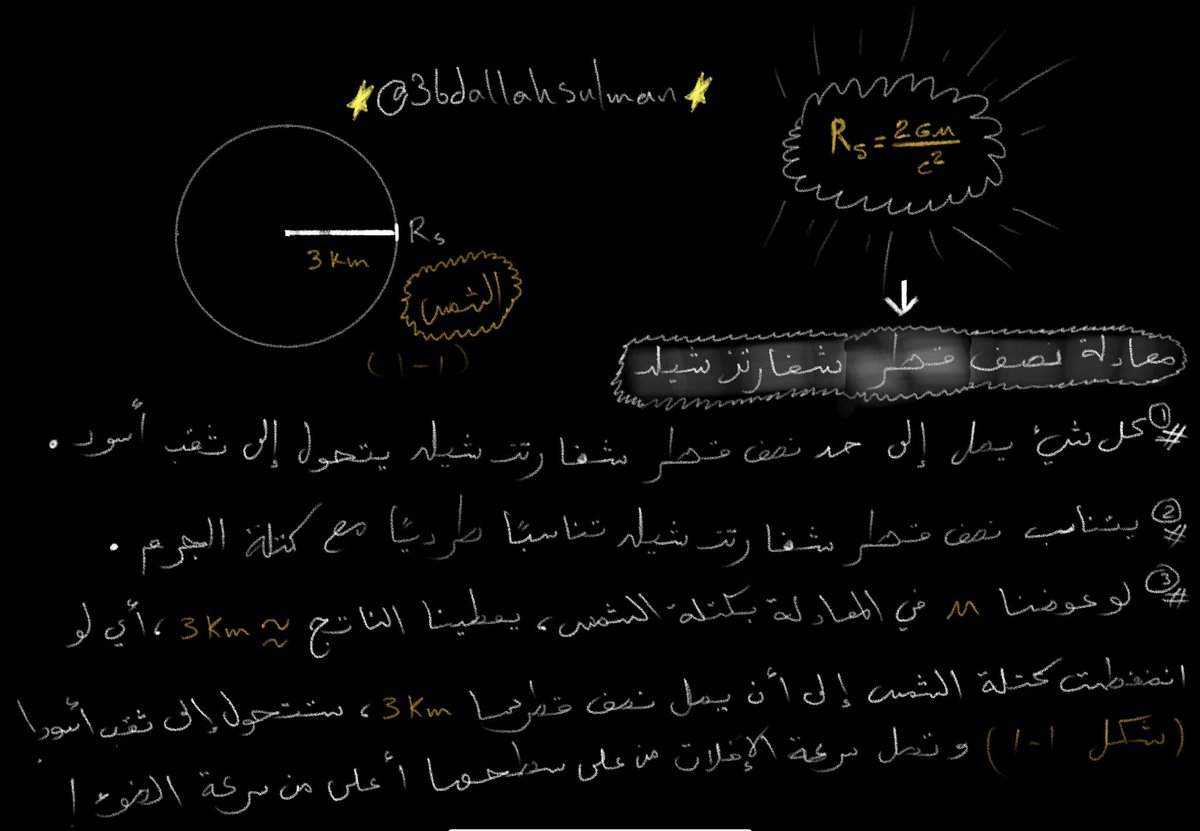 @36dallahsulman
Rs = 2GM / c²
Rs
3 Km
الشمس
(1-1)
معادلة نصف قطر شفارتز شيلد
#① كل شيئ يصل إلى حد نصف قطر شفارتز شيلد يتحول إلى ثقب أسود .
#② يتناسب نصف قطر شفارتز شيلد تناسبًا طرديًا مع كتلة الجرم .
#③ لو عوضنا M في المعادلة بكتلة الشمس، يعطينا الناتج ≈ 3 Km ، أي لو
انضغطت كتلة الشمس إلى أن يصل نصف قطرها 3 Km ، ستتحول إلى ثقب أسود!
(شكل 1-1) وتصل سرعة الإفلات من على سطحها أعلى من سرعة الضوء!